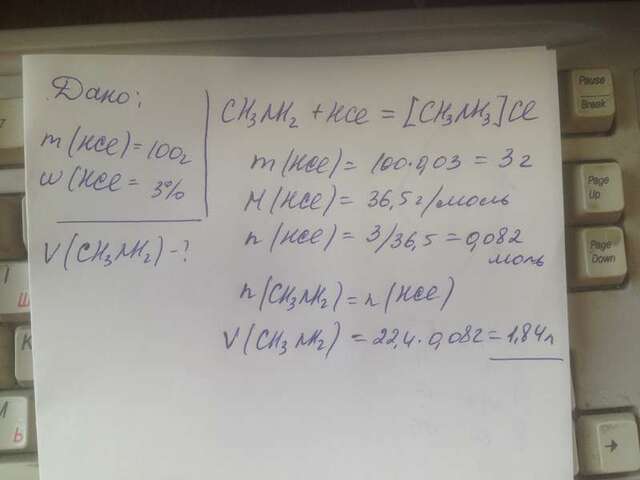 Дано:
m(HCl)=100г
w(HCl= 3%
V(CH₃NH₂)-?
CH₃NH₂ + HCl = [CH₃NH₃]Cl
m(HCl)= 100·0,03 = 3г
M(HCl)= 36,5г/моль
n(HCl)= 3/36,5=0,082
моль
n(CH₃NH₂)=n(HCl)
V(CH₃NH₂)=22,4·0,082=1,84л
Pause
Break
Page
Up
Page
Down
Ш
Ь
→